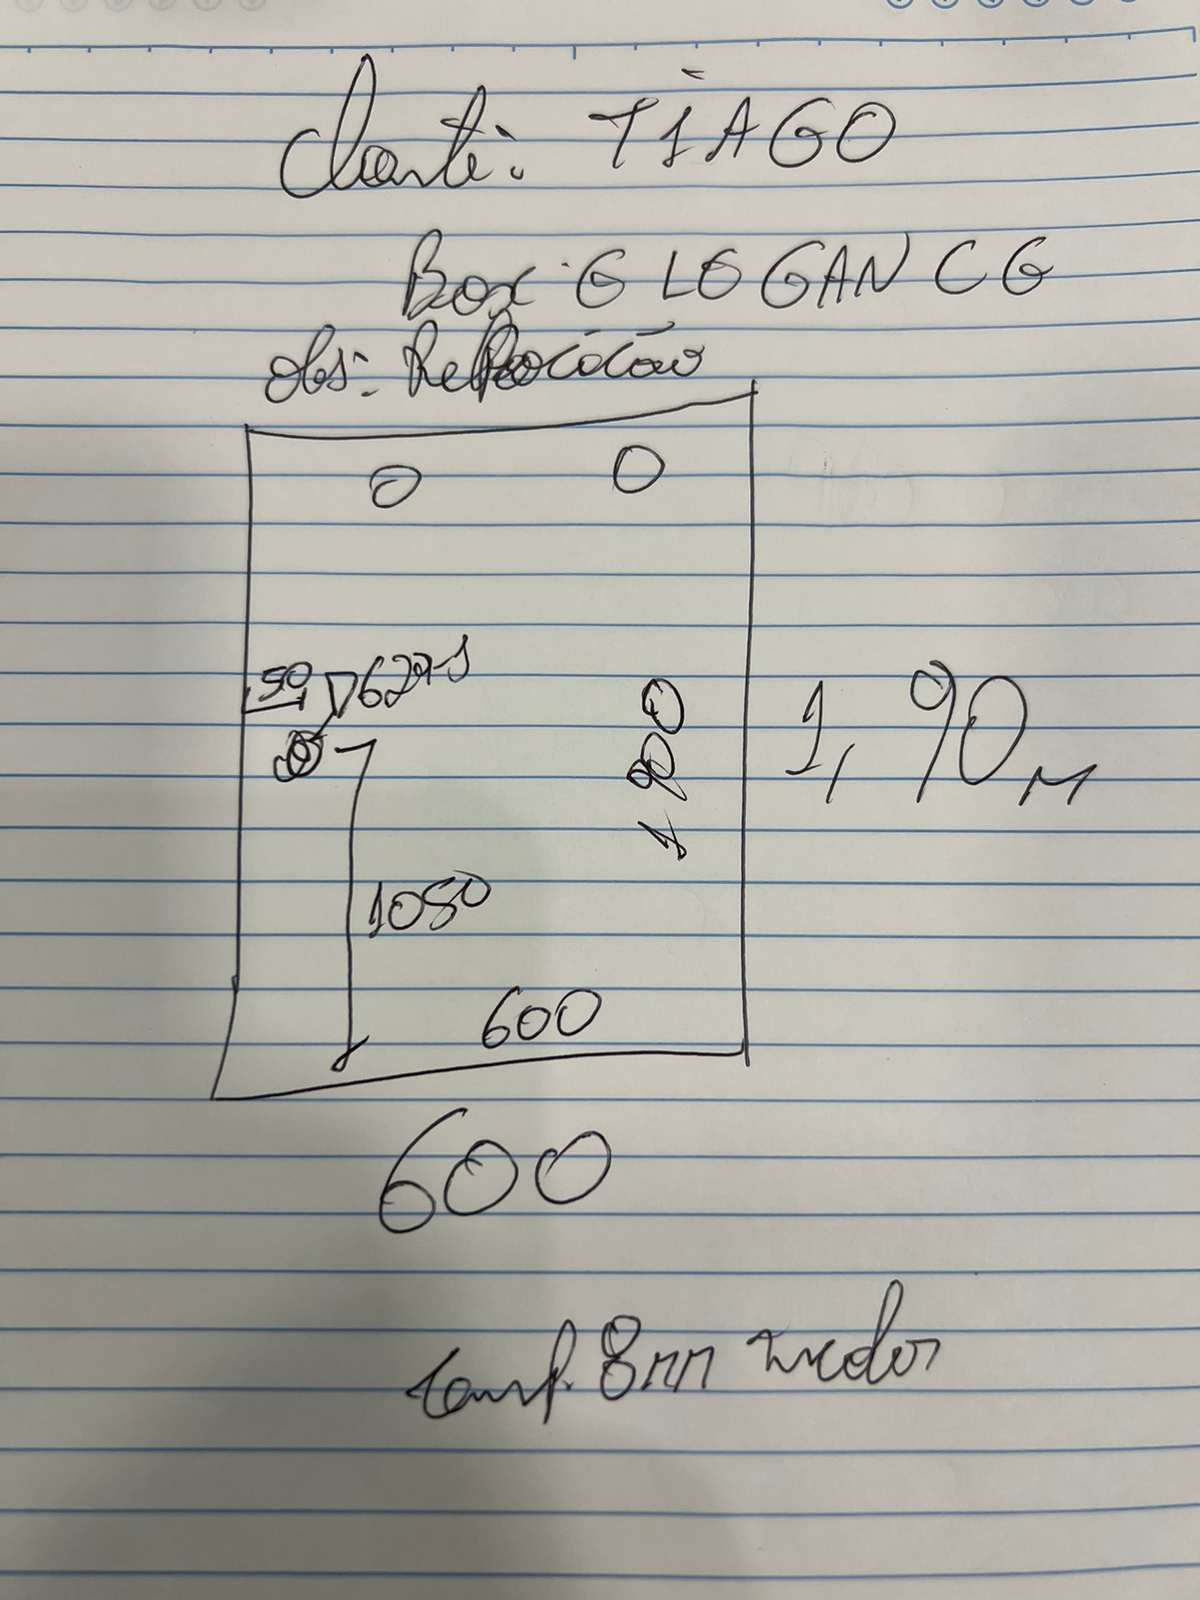 Cliente: TIAGO
Box: ELEGANCE
obs: Reposição
50 629-J
1900
1,90 M
1080
600
600
temp. 8mm incolor